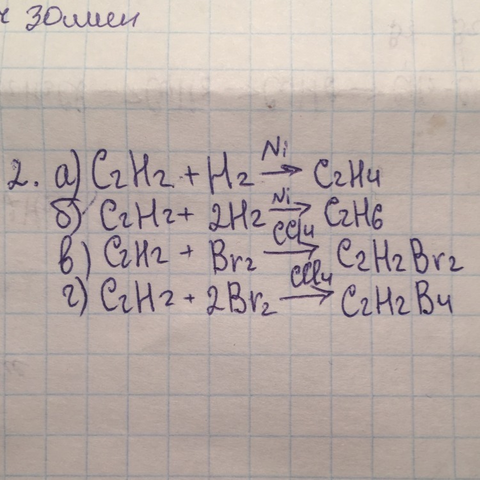 30мин
2. а) C2H2 + H2 Ni→ C2H4
б) C2H2 + 2H2 Ni→ C2H6
в) C2H2 + Br2 CCl4→ C2H2Br2
г) C2H2 + 2Br2 CCl4→ C2H2B4